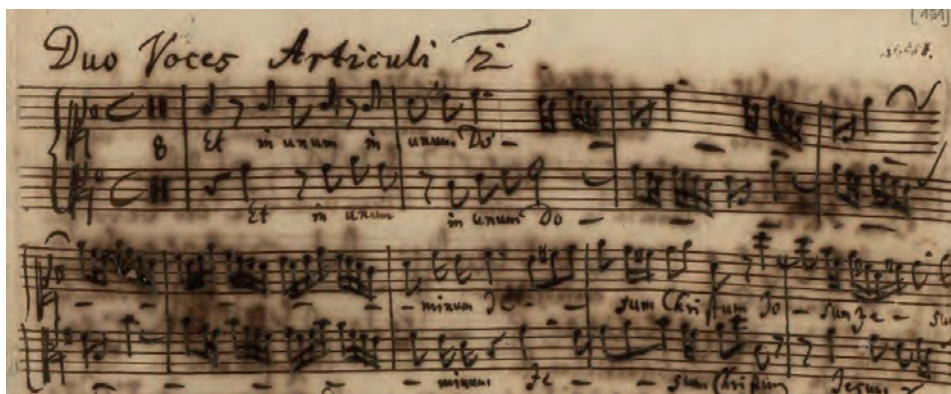 [151]
Duo Voces Articuli 2
8 Et in unum in unum Do -
Et in unum in unum Do -
- minum Je - sum Christum Je - sum Je -
- minum Je - sum Christum Jesum